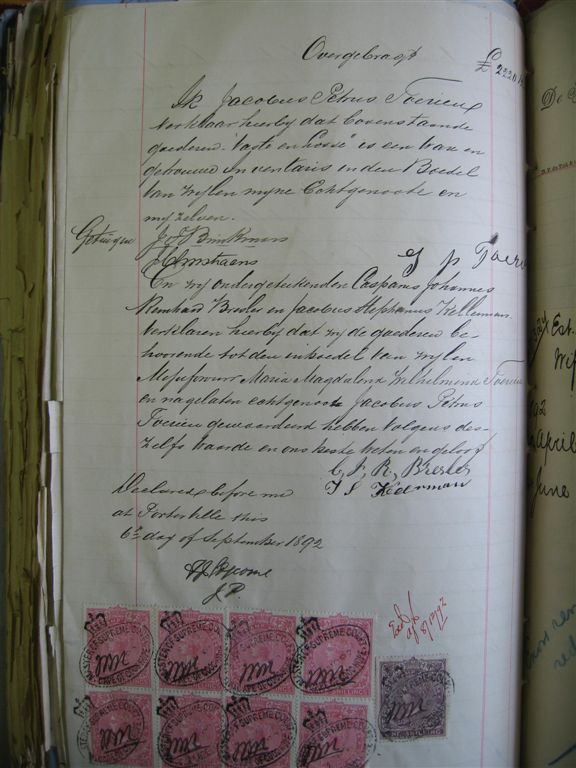 Overgebragt £
Ik Jacobus Petrus Toerien
verklaar hierby dat bovenstaande
goederen "Vaste en Losse" is een ware en
getrouwe inventaris in den Boedel
van wylen myne Echtgenoote en
my zelven.
Getuigen J J Brinkmans
S P Toerien
En wy ondergeteekenden Casparus Johannes
Reinhard Bresler en Jacobus Stephanus Kellerman
verklaren hierby dat wy de goederen be-
hoorende tot den inboedel van wylen
Mejufvrouw Maria Magdalena Wilhelmina Toerien
en nagelaten echtgenoot Jacobus Petrus
Toerien gewaardeerd hebben volgens des-
zelfs waarde en ons beste weten en geloof
C. J. R. Bresler
J S Kellerman
Declared before me
at Porterville this
6th day of September 1892
J.P.
MASTER OF SUPREME COURT
CAPE OF GOOD HOPE
ONE SHILLING
Est.
Wif
April
June